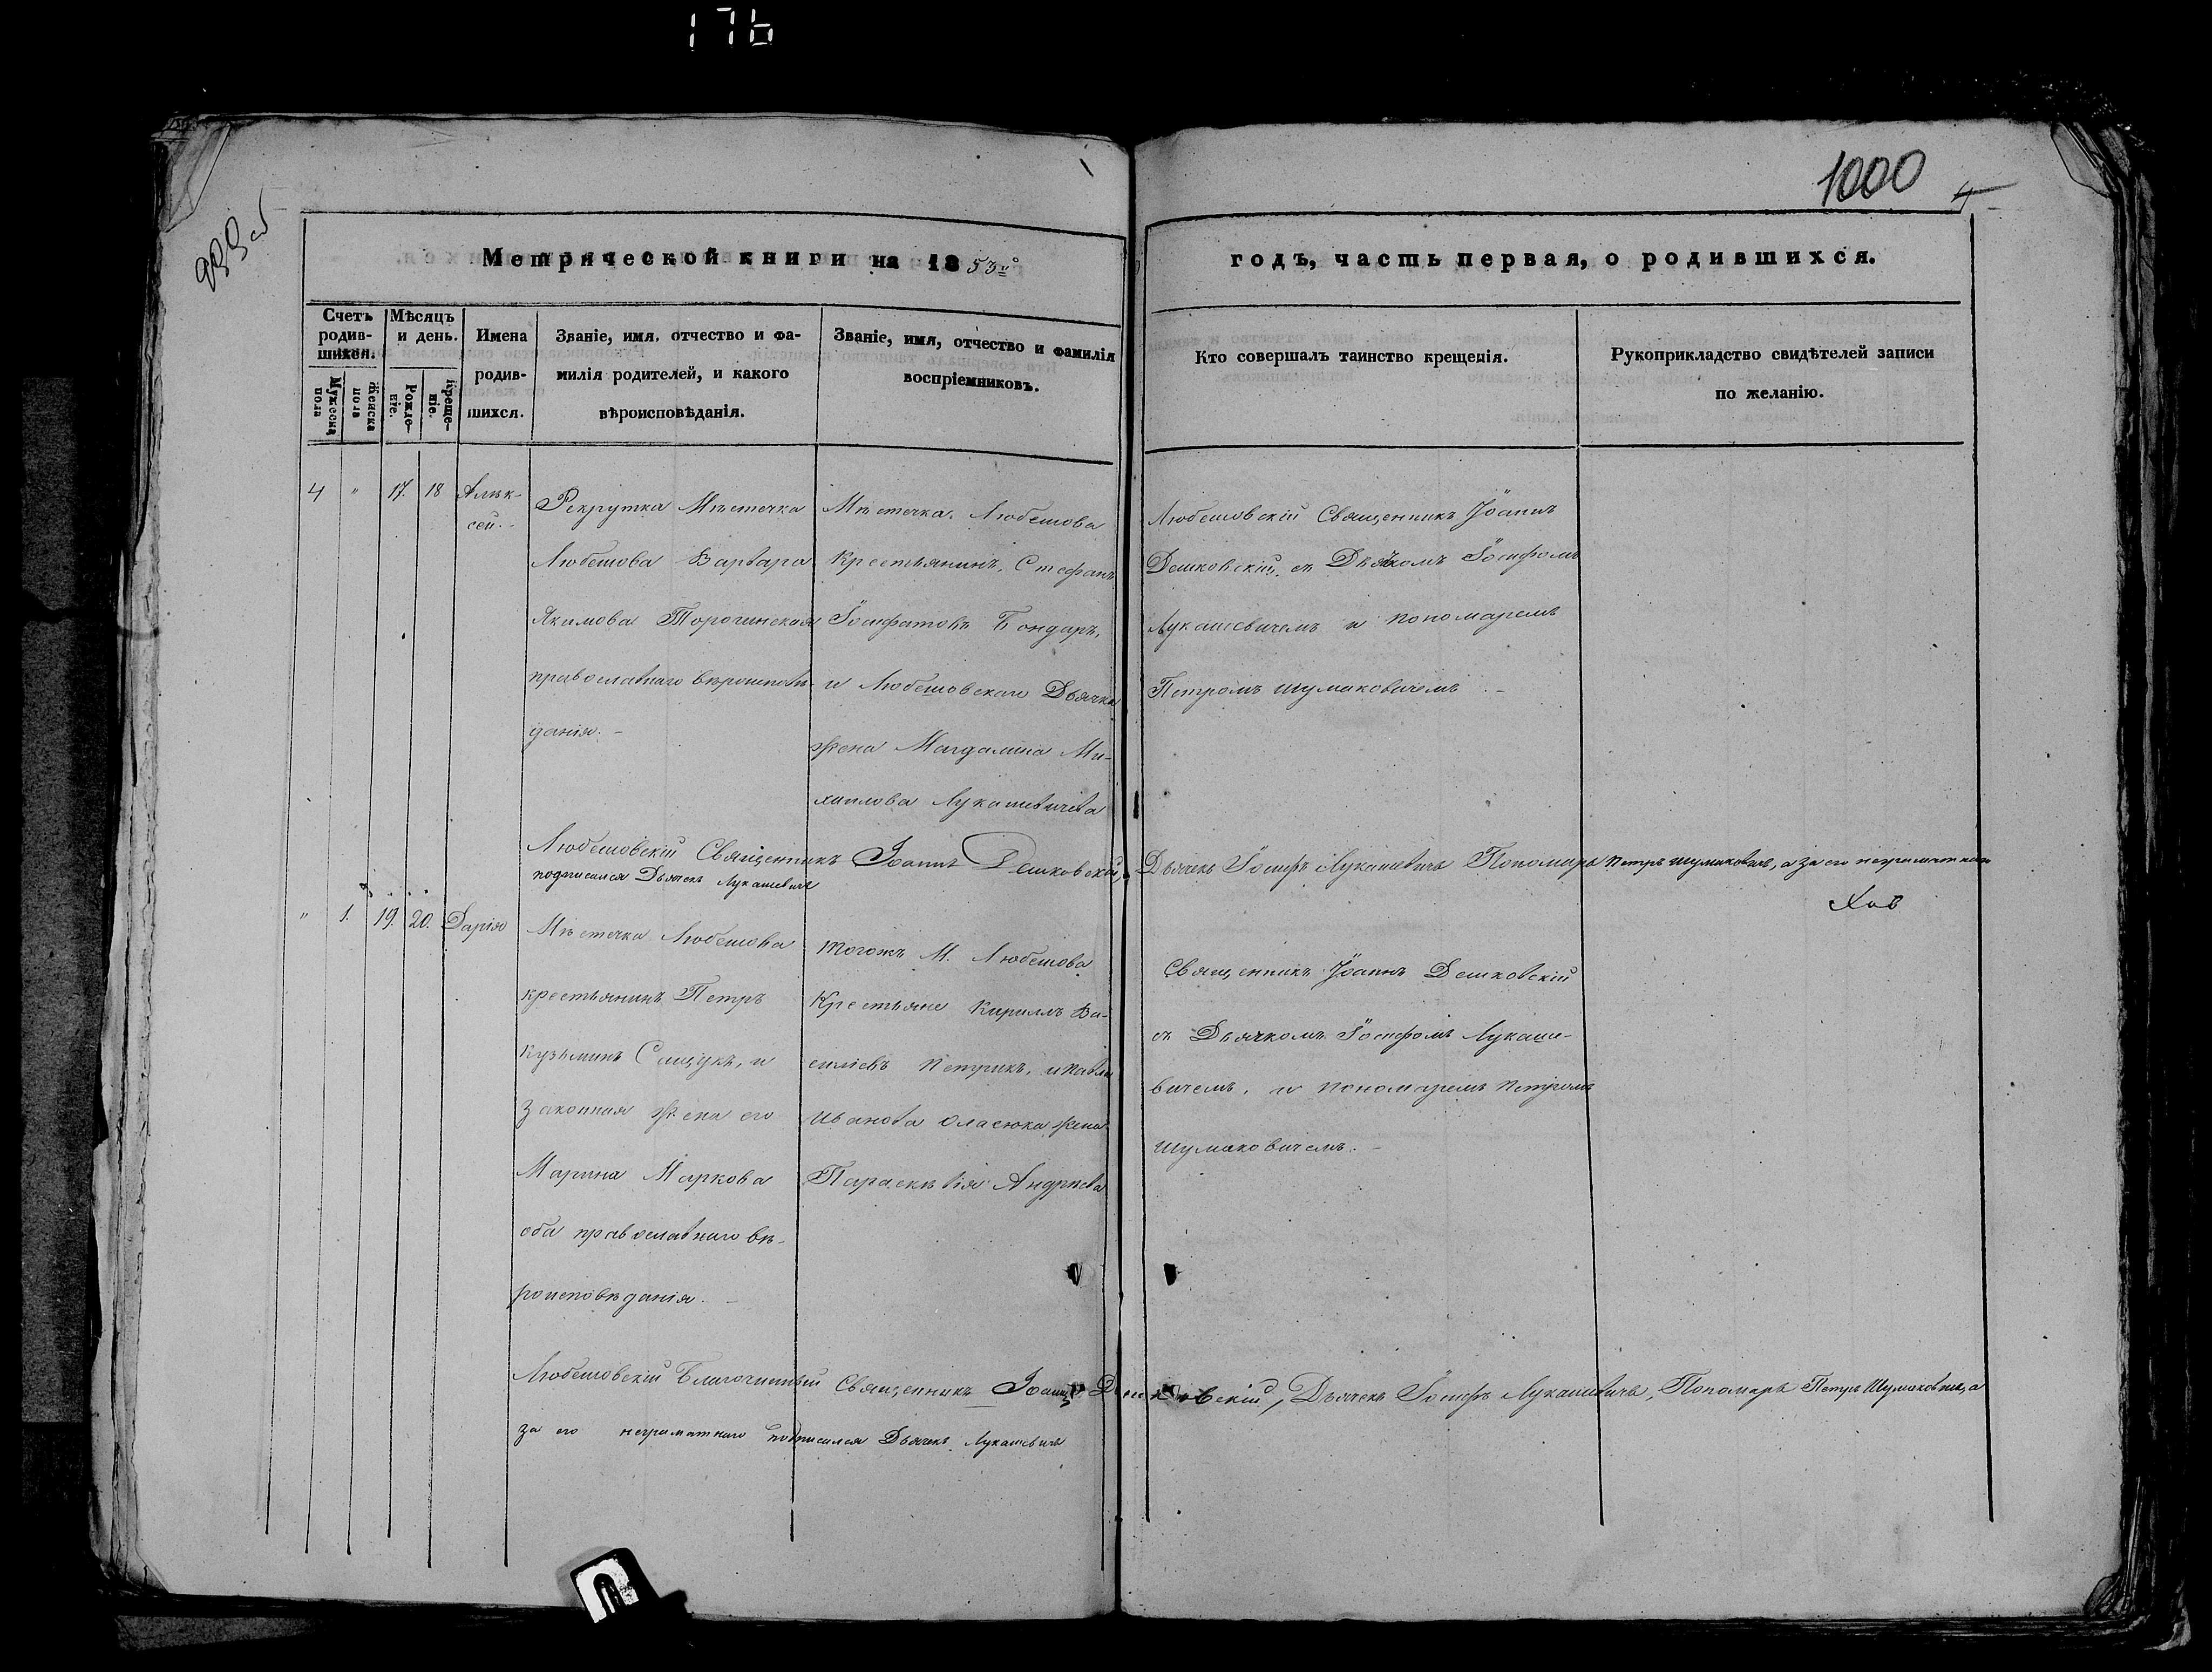 176
1000
4
999 об
Метрической книги на 1853й
годъ, часть первая, о родившихся.
Счетъ родив-шихся.
Мужеска пола
Женска пола
Мѣсяцъ и день.
Рожде-ніе.
Креще-ніе.
Имена
родив-
шихся.
Званіе, имя, отчество и фа-
милія родителей, и какого
вѣроисповѣданія.
Званіе, имя, отчество и фамилія
воспріемниковъ.
Кто совершалъ таинство крещенія.
Рукоприкладство свидѣтелей записи
по желанію.
4 " 17. 18 Алек-
сей.
Рекрутка Мѣстечка
Любешова Варвара
Якимова Торочинская
православнаго вѣроисповѣ-
данія. -
Мѣстечка Любешова
Крестьянинъ, Стефанъ
Іосифатовъ Бондаръ,
и Любешовскаго Дьячка
жена Магдалина Ми-
хаилова Лукашевичева
Любешовскій Священникъ Іоаннъ
Дешковскій, съ Дьячкомъ Іосифомъ
Лукашевичемъ и пономаремъ
Петромъ Шумаковичемъ. -
Любешовскій Священникъ Іоаннъ Дешковскій, Дьячекъ Іосифъ Лукашевичъ Пономарь Петръ Шумаковичъ, а за его неграматнаго
подписался Дьячекъ Лукашевичъ
" 1. 19. 20. Дарія
Мѣстечка Любешова
крестьянинъ Петръ
Кузьминъ Сащукъ, и
законная жена его
Марина Маркова
оба православнаго вѣ-
роисповѣданія. -
Тогожъ М. Любешова
Крестьяне Кириллъ Ва-
силіевъ Петрикъ, и Павла
Иванова Оласюка жена
Параскевія Андреева
Священникъ Іоаннъ Дешковскій
съ Дьячкомъ Іосифомъ Лукаше-
вичемъ, и пономаремъ Петромъ
Шумаковичемъ. -
Любешовскій Благочинный Священникъ Іоаннъ Дешковскій, Дьячекъ Іосифъ Лукашевичъ, Пономарь Петръ Шумаковичъ, а
за его неграматнаго подписался Дьячекъ Лукашевичъ